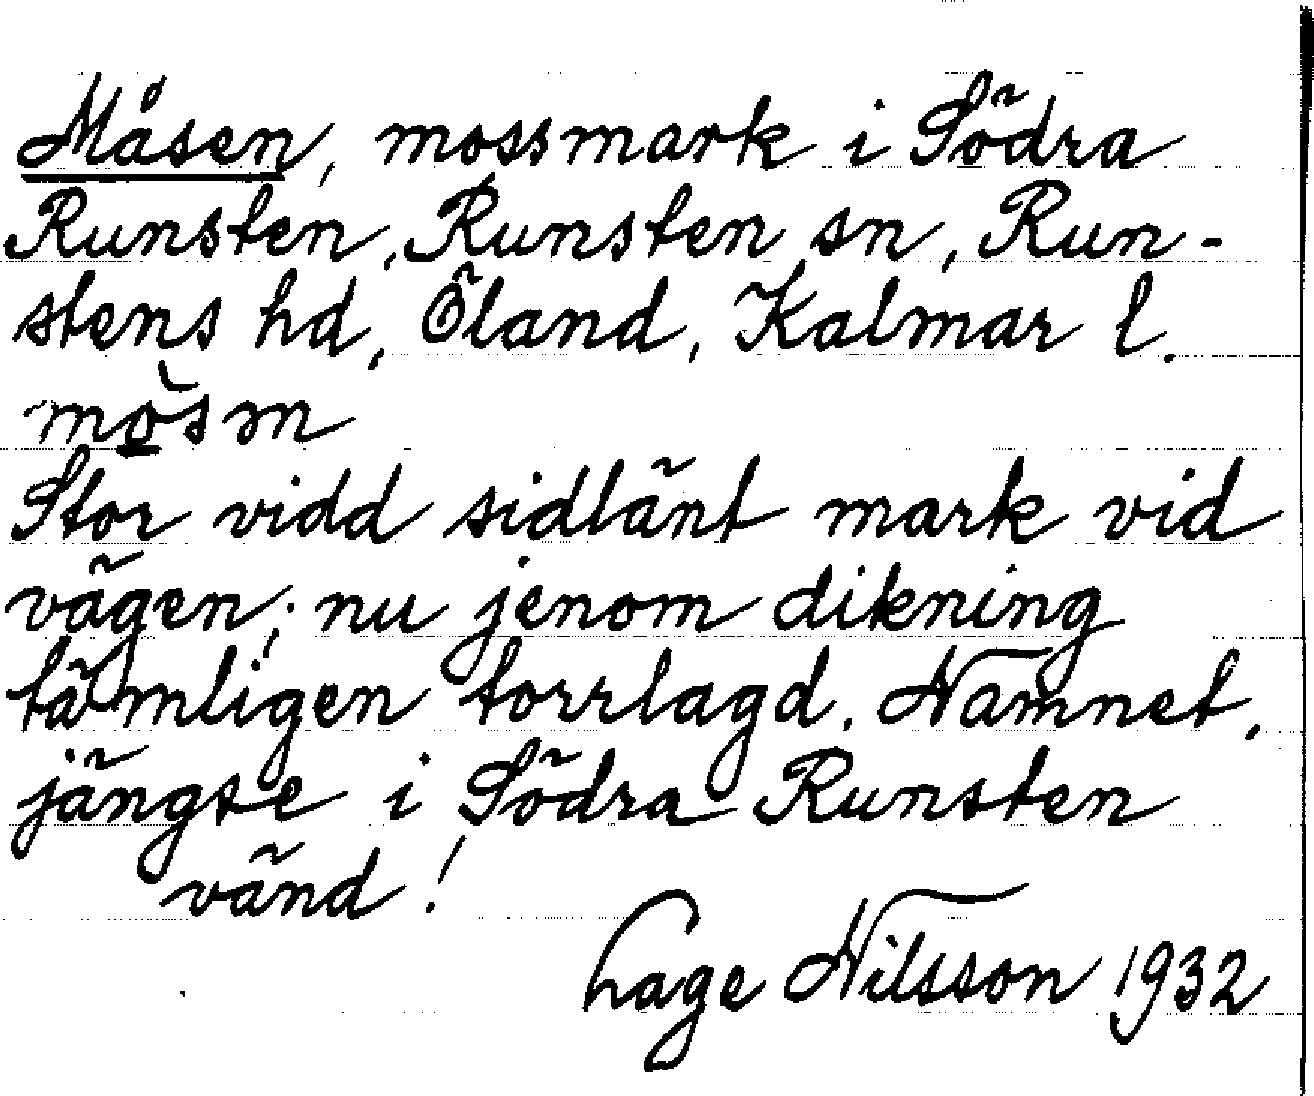 Måsen, mossmark i Södra
Runsten, Runsten sn, Run-
stens hd, Öland, Kalmar l.
mo̱̊sm
Stor vidd sidlänt mark vid
vägen; nu jenom dikning
tämligen torrlagd. Namnet,
jängse i Södra Runsten
vänd!
Lage Nilsson 1932